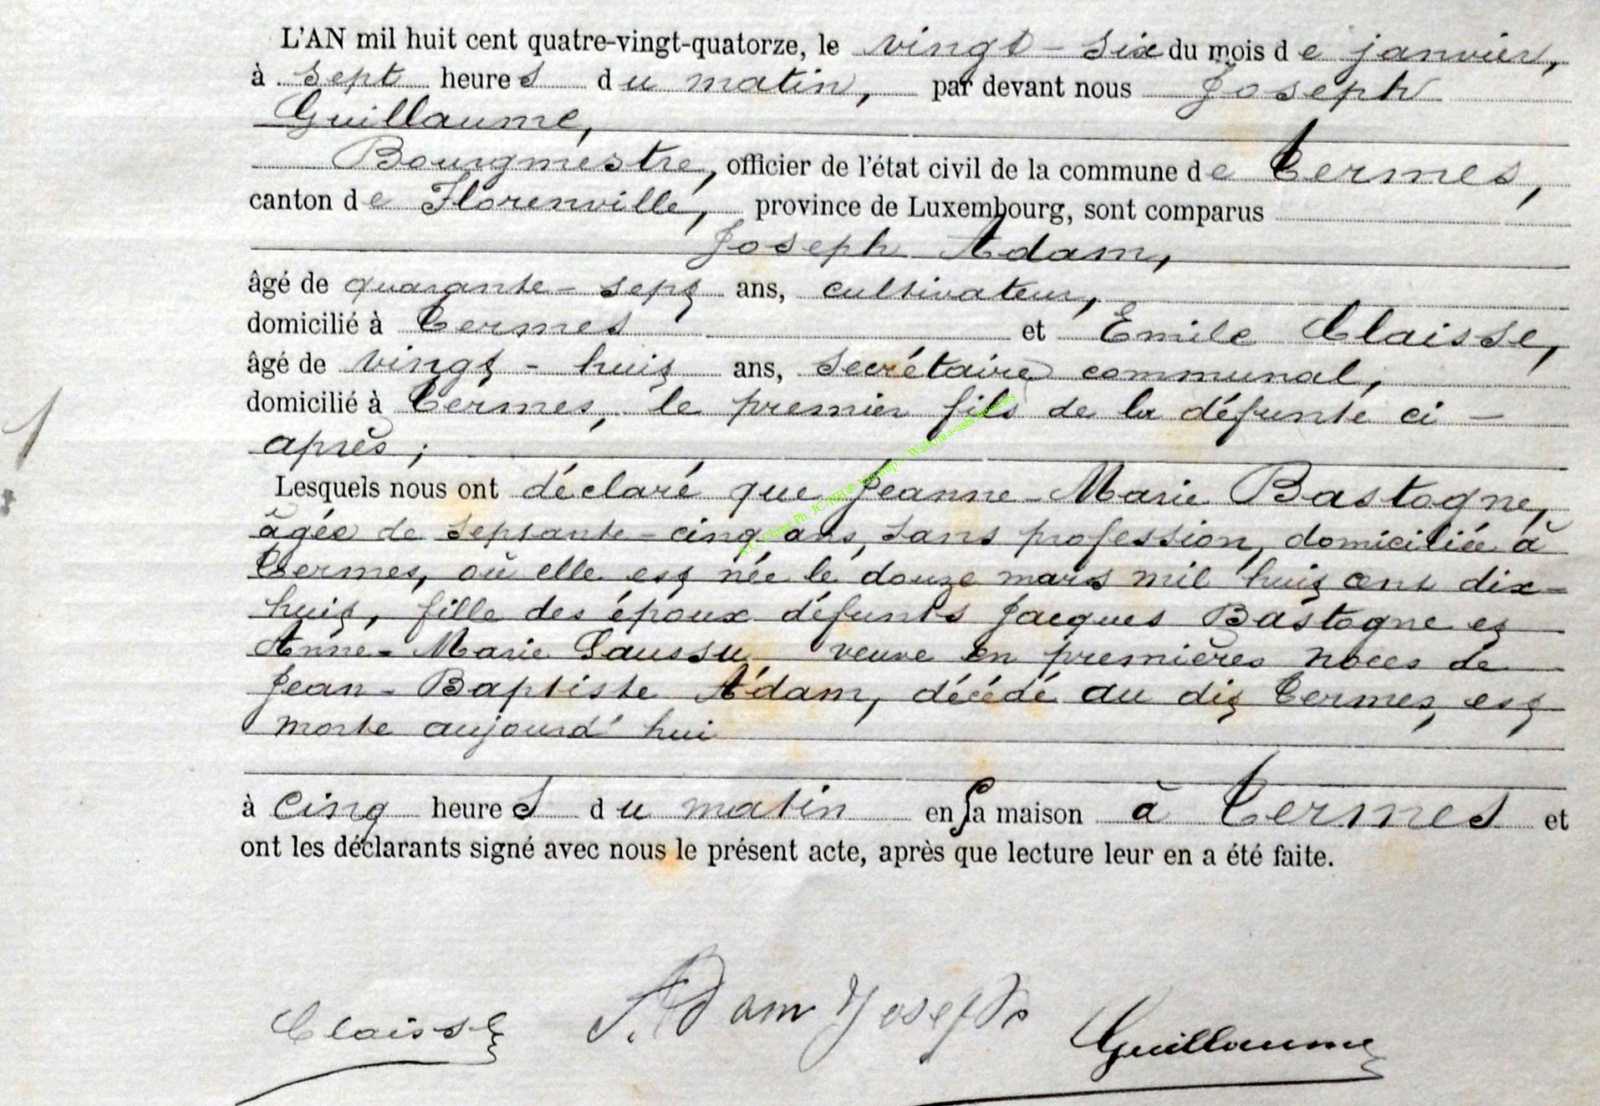 L'AN mil huit cent quatre-vingt-quatorze, le vingt-six du mois de janvier,
à sept heures du matin, par devant nous Joseph
Guillaume,
Bourgmestre, officier de l'état civil de la commune de Termes,
canton de Florenville, province de Luxembourg, sont comparus
Joseph Adam,
âgé de quarante-sept ans, cultivateur,
domicilié à Termes et Emile Claisse,
âgé de vingt-huit ans, secrétaire communal,
domicilié à Termes, le premier fils de la défunte ci-
après;
Lesquels nous ont déclaré que Jeanne-Marie Bastogne,
âgée de septante-cinq ans, sans profession, domiciliée à
Termes, où elle est née le douze mars mil huit cent dix-
huit, fille des époux défunts Jacques Bastogne et
Anne-Marie Saussu veuve en premières noces de
Jean-Baptiste Adam, décédé au dit Termes, est
morte aujourd'hui
à cinq heures du matin en sa maison à Termes et
ont les déclarants signé avec nous le présent acte, après que lecture leur en a été faite.
Claisse Adam Joseph Guillaume